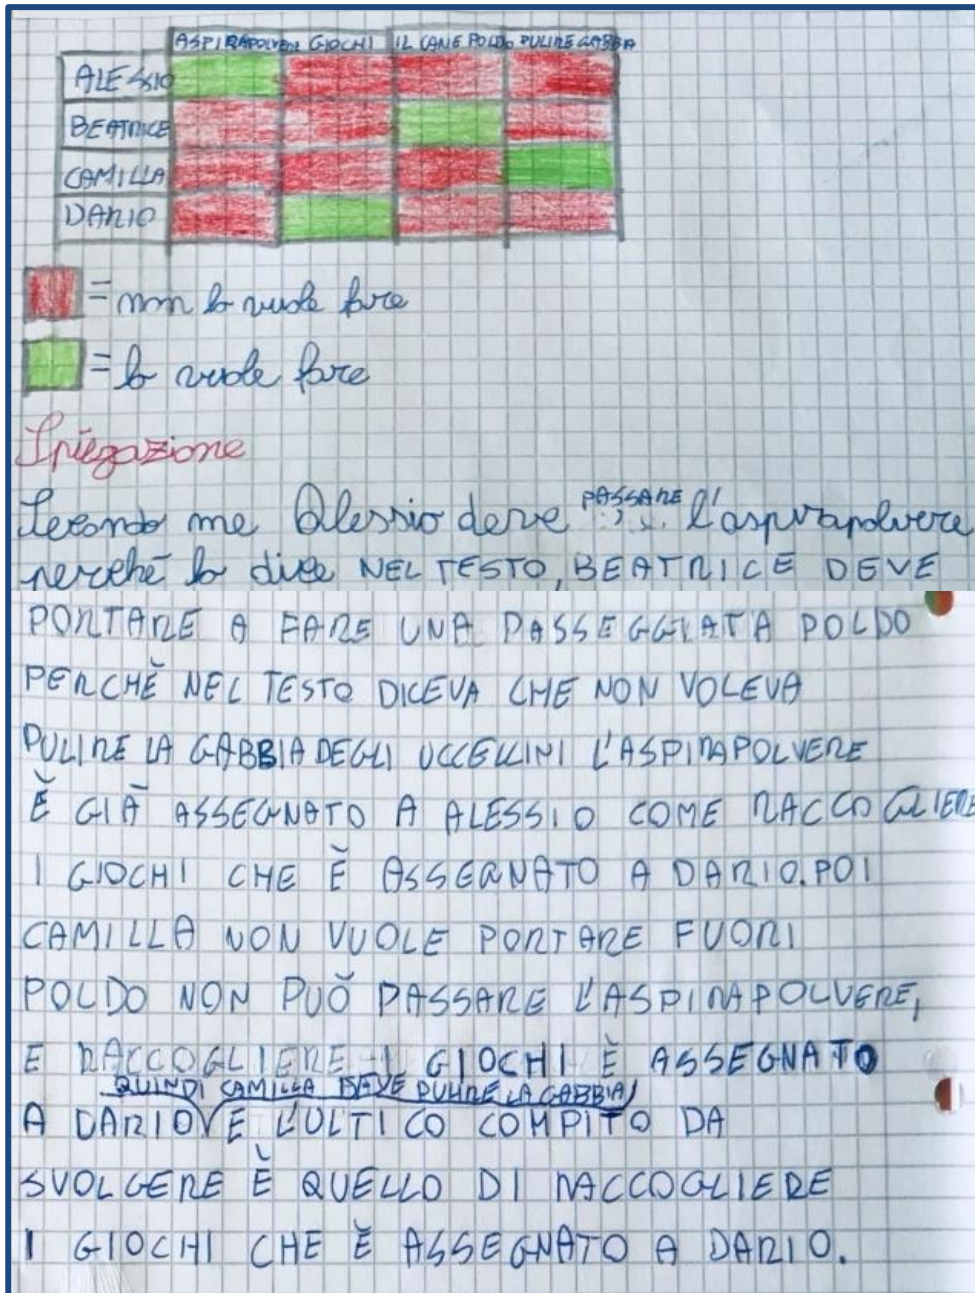 ASPIRAPOLVERE GIOCHI IL CANE POLDO PULIRE GABBIA
ALESSIO
BEATRICE
CAMILLA
DARIO
= non lo vuole fare
= lo vuole fare
Spiegazione
Secondo me Alessio deve PASSARE l'aspirapolvere
perché lo dice NEL TESTO, BEATRICE DEVE
PORTARE A FARE UNA PASSEGGIATA POLDO
PERCHÈ NEL TESTO DICEVA CHE NON VOLEVA
PULIRE LA GABBIA DEGLI UCCELLINI L'ASPIRAPOLVERE
È GIÀ ASSEGNATO A ALESSIO COME RACCOGLIERE
I GIOCHI CHE È ASSEGNATO A DARIO. POI
CAMILLA NON VUOLE PORTARE FUORI
POLDO NON PUÒ PASSARE L'ASPIRAPOLVERE,
E RACCOGLIERE I GIOCHI È ASSEGNATO
QUINDI CAMILLA DEVE PULIRE LA GABBIA
A DARIO E L'ULTICO COMPITO DA
SVOLGERE È QUELLO DI RACCOGLIERE
I GIOCHI CHE È ASSEGNATO A DARIO.